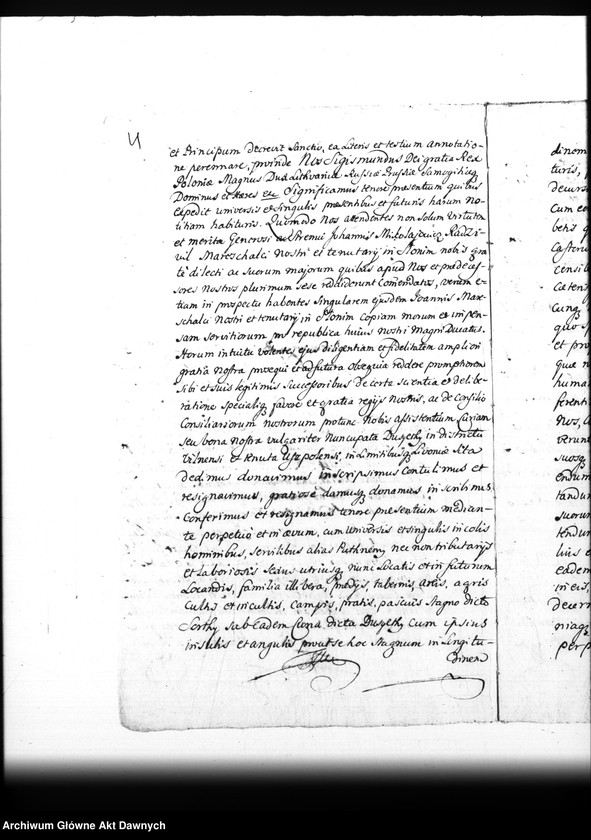 4
et Principum decrevit Sanctio, ea Literis et testium Annotatio-
ne perennare, proinde Nos Sigismundus Dei gratia Rex
Poloniæ Magnus Dux Lithvaniæ Russiæ Prussiæ Samogitiæq
Dominus et Hæres etc Significamus tenore præsentium quibus
expedit universis et Singulis præsentibus et futuris harum No-
titiam habituris. Quomodo Nos attendentes non Solum Virtutem
et merita Generosi ac Strenui Johannis Mikołajewicz Radzi-
vil Mareschalci Nostri et tenutarij in Słonim nobis gra
te dilecti ac Suorum majorum quibus apud Nos et prædeces-
sores Nostros plurimum sese reddiderunt Comendatos, verum e-
tiam in prospectu habentes Singularem ejusdem Joannis Mar-
schalci Nostri et tenutarij in Słonim copiam morum et impen-
sam Servitiorum in republica huius Nostri Magni Ducatus.
Horum intuitu volentes ejus diligentiam et fidelitatem ampliori
gratia Nostra prosequi et ad futura obsequia reddere promptiorem
Sibi et Suis legitimis Successoribus de certa Scientia et delibe-
ratione Specialiq favore et gratia regijs Nostris, ac de Consilio
Consiliariorum Nostrorum protunc Nobis assistentium Curiam
Seu bona Nostra vulgariter Nuncupata Dusyethy in districtu
Vilnensi et tenuta Uszpolensi, in Limitibusq Livoniæ Sita
dedimus donavimus inscripsimus Contulimus et
resignavimus, gratiose damusq donamus, inscribimus
Conferimus et resignamus tenore præsentium median-
te perpetuo et in ævum, cum Universis et singulis incolis
hominibus, servilibus alias Puthnemy nec non tributarijs
et Laboriosis Sexus utriusq nunc Locatis et in futurum
Locandis, familia illibera, prædijs, tabernis, areis, agris
Cultis et incultis, Campis, pratis, pascuis Stagno dicto
Sorthy Sub eadem Curia dicta Dusyethy cum ipsius
insulis et angulis prout se hoc Stagnum in Longitu-
dinem
dinem
turis,
decurs
Cum eo
betis q
Castoru
censib
Catens
Cunq
quo
et pro
quæ n
humar
ferenti
Nos,
verunt
Suosq
endum
tandu
Suorum
tendun
luis e
eadem
in eis,
decern
niaq
perp